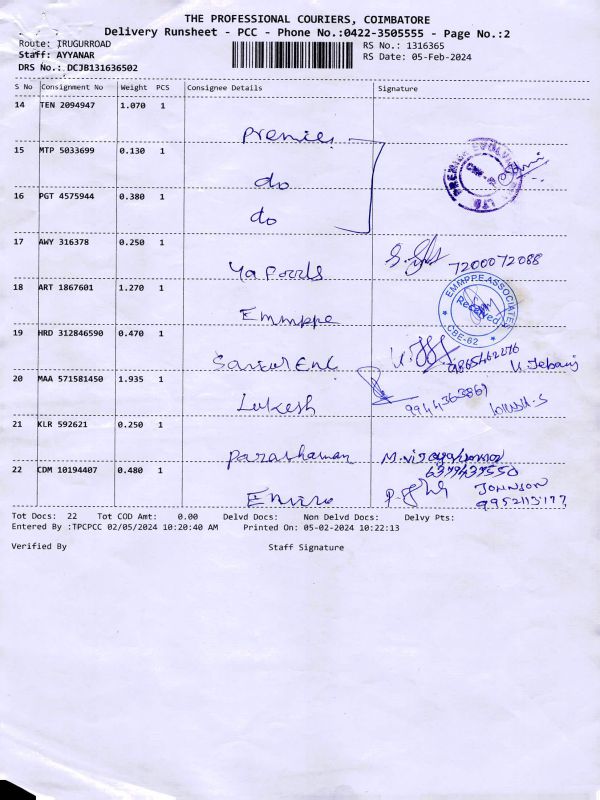 THE PROFESSIONAL COURIERS, COIMBATORE
Delivery Runsheet - PCC - Phone No.:0422-3505555 - Page No.:2
Route: IRUGURROAD
RS No.: 1316365
Staff: AYYANAR
RS Date: 05-Feb-2024
DRS No.: DCJB131636502
S No Consignment No Weight PCS Consignee Details Signature
14 TEN 2094947 1.070 1
Premier
15 MTP 5033699 0.130 1
do
16 PGT 4575944 0.380 1
do
17 AWY 316378 0.250 1
7200072088
18 ART 1867601 1.270 1
Emmppe
EMMPPE ASSOCIATES
Received
CBE-62
19 HRD 312846590 0.470 1
20 MAA 571581450 1.935 1
Lokesh
21 KLR 592621 0.250 1
22 CDM 10194407 0.480 1
JOHNSON
Tot Docs: 22 Tot COD Amt: 0.00 Delvd Docs: Non Delvd Docs: Delvy Pts:
Entered By :TPCPCC 02/05/2024 10:20:40 AM Printed On: 05-02-2024 10:22:13
Verified By Staff Signature